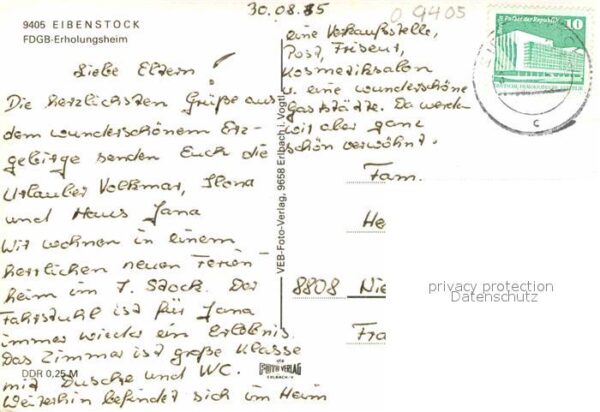 9405 EIBENSTOCK
FDGB-Erholungsheim
30.08.85
O 9405
Liebe Eltern!
Die herzlichsten Grüße aus
dem wunderschönem Erz-
gebirge senden Euch die
Urlauber Volkmar, Ilona
und Jana
Wir wohnen in einem
herrlichen neuen Ferien-
heim im 7. Stock. Der
Fahrstuhl ist für Jana
immer wieder ein Erlebnis.
Das Zimmer ist große Klasse
mit Dusche und WC.
Weiterhin befindet sich im Heim
eine Verkaufsstelle,
Post, Friseur,
Kosmetiksalon
u. eine wunderschöne
Gaststätte. Da werden
wir aber ganz
schön verwöhnt.
DDR 0,25 M
VEB-Foto-Verlag, 9658 Erlbach i. Vogtl.
FOTO VERLAG
ERLBACH/V
Palast der Republik
10
c
Fam.
He
8808 Nie
Fra
privacy protection
Datenschutz